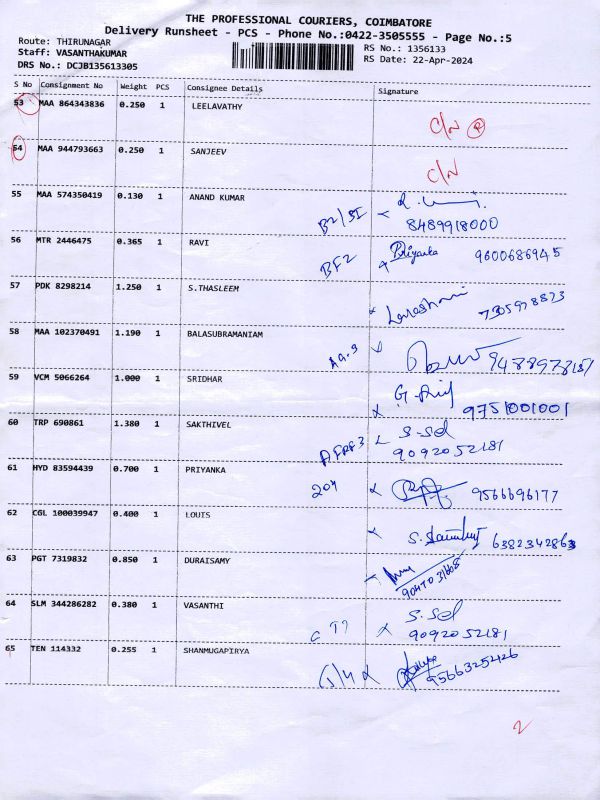 THE PROFESSIONAL COURIERS, COIMBATORE
Delivery Runsheet - PCS - Phone No.:0422-3505555 - Page No.:5
Route: THIRUNAGAR
Staff: VASANTHAKUMAR
DRS No.: DCJB135613305
RS No.: 1356133
RS Date: 22-Apr-2024
S No Consignment No Weight PCS Consignee Details Signature
53 MAA 864343836 0.250 1 LEELAVATHY
C/N R
54 MAA 944793663 0.250 1 SANJEEV
C/N
55 MAA 574350419 0.130 1 ANAND KUMAR
8489918000
56 MTR 2446475 0.365 1 RAVI
BF2 Priyanka 9600686945
57 PDK 8298214 1.250 1 S.THASLEEM
7305978823
58 MAA 102370491 1.190 1 BALASUBRAMANIAM
59 VCM 5066264 1.000 1 SRIDHAR
9751001001
60 TRP 690861 1.380 1 SAKTHIVEL
S-Sel
9092052181
61 HYD 83594439 0.700 1 PRIYANKA
204 9566696177
62 CGL 100039947 0.400 1 LOUIS
6382342863
63 PGT 7319832 0.850 1 DURAISAMY
64 SLM 344286282 0.380 1 VASANTHI
S-Sel
9092052181
65 TEN 114332 0.255 1 SHANMUGAPIRYA
9566325426
2